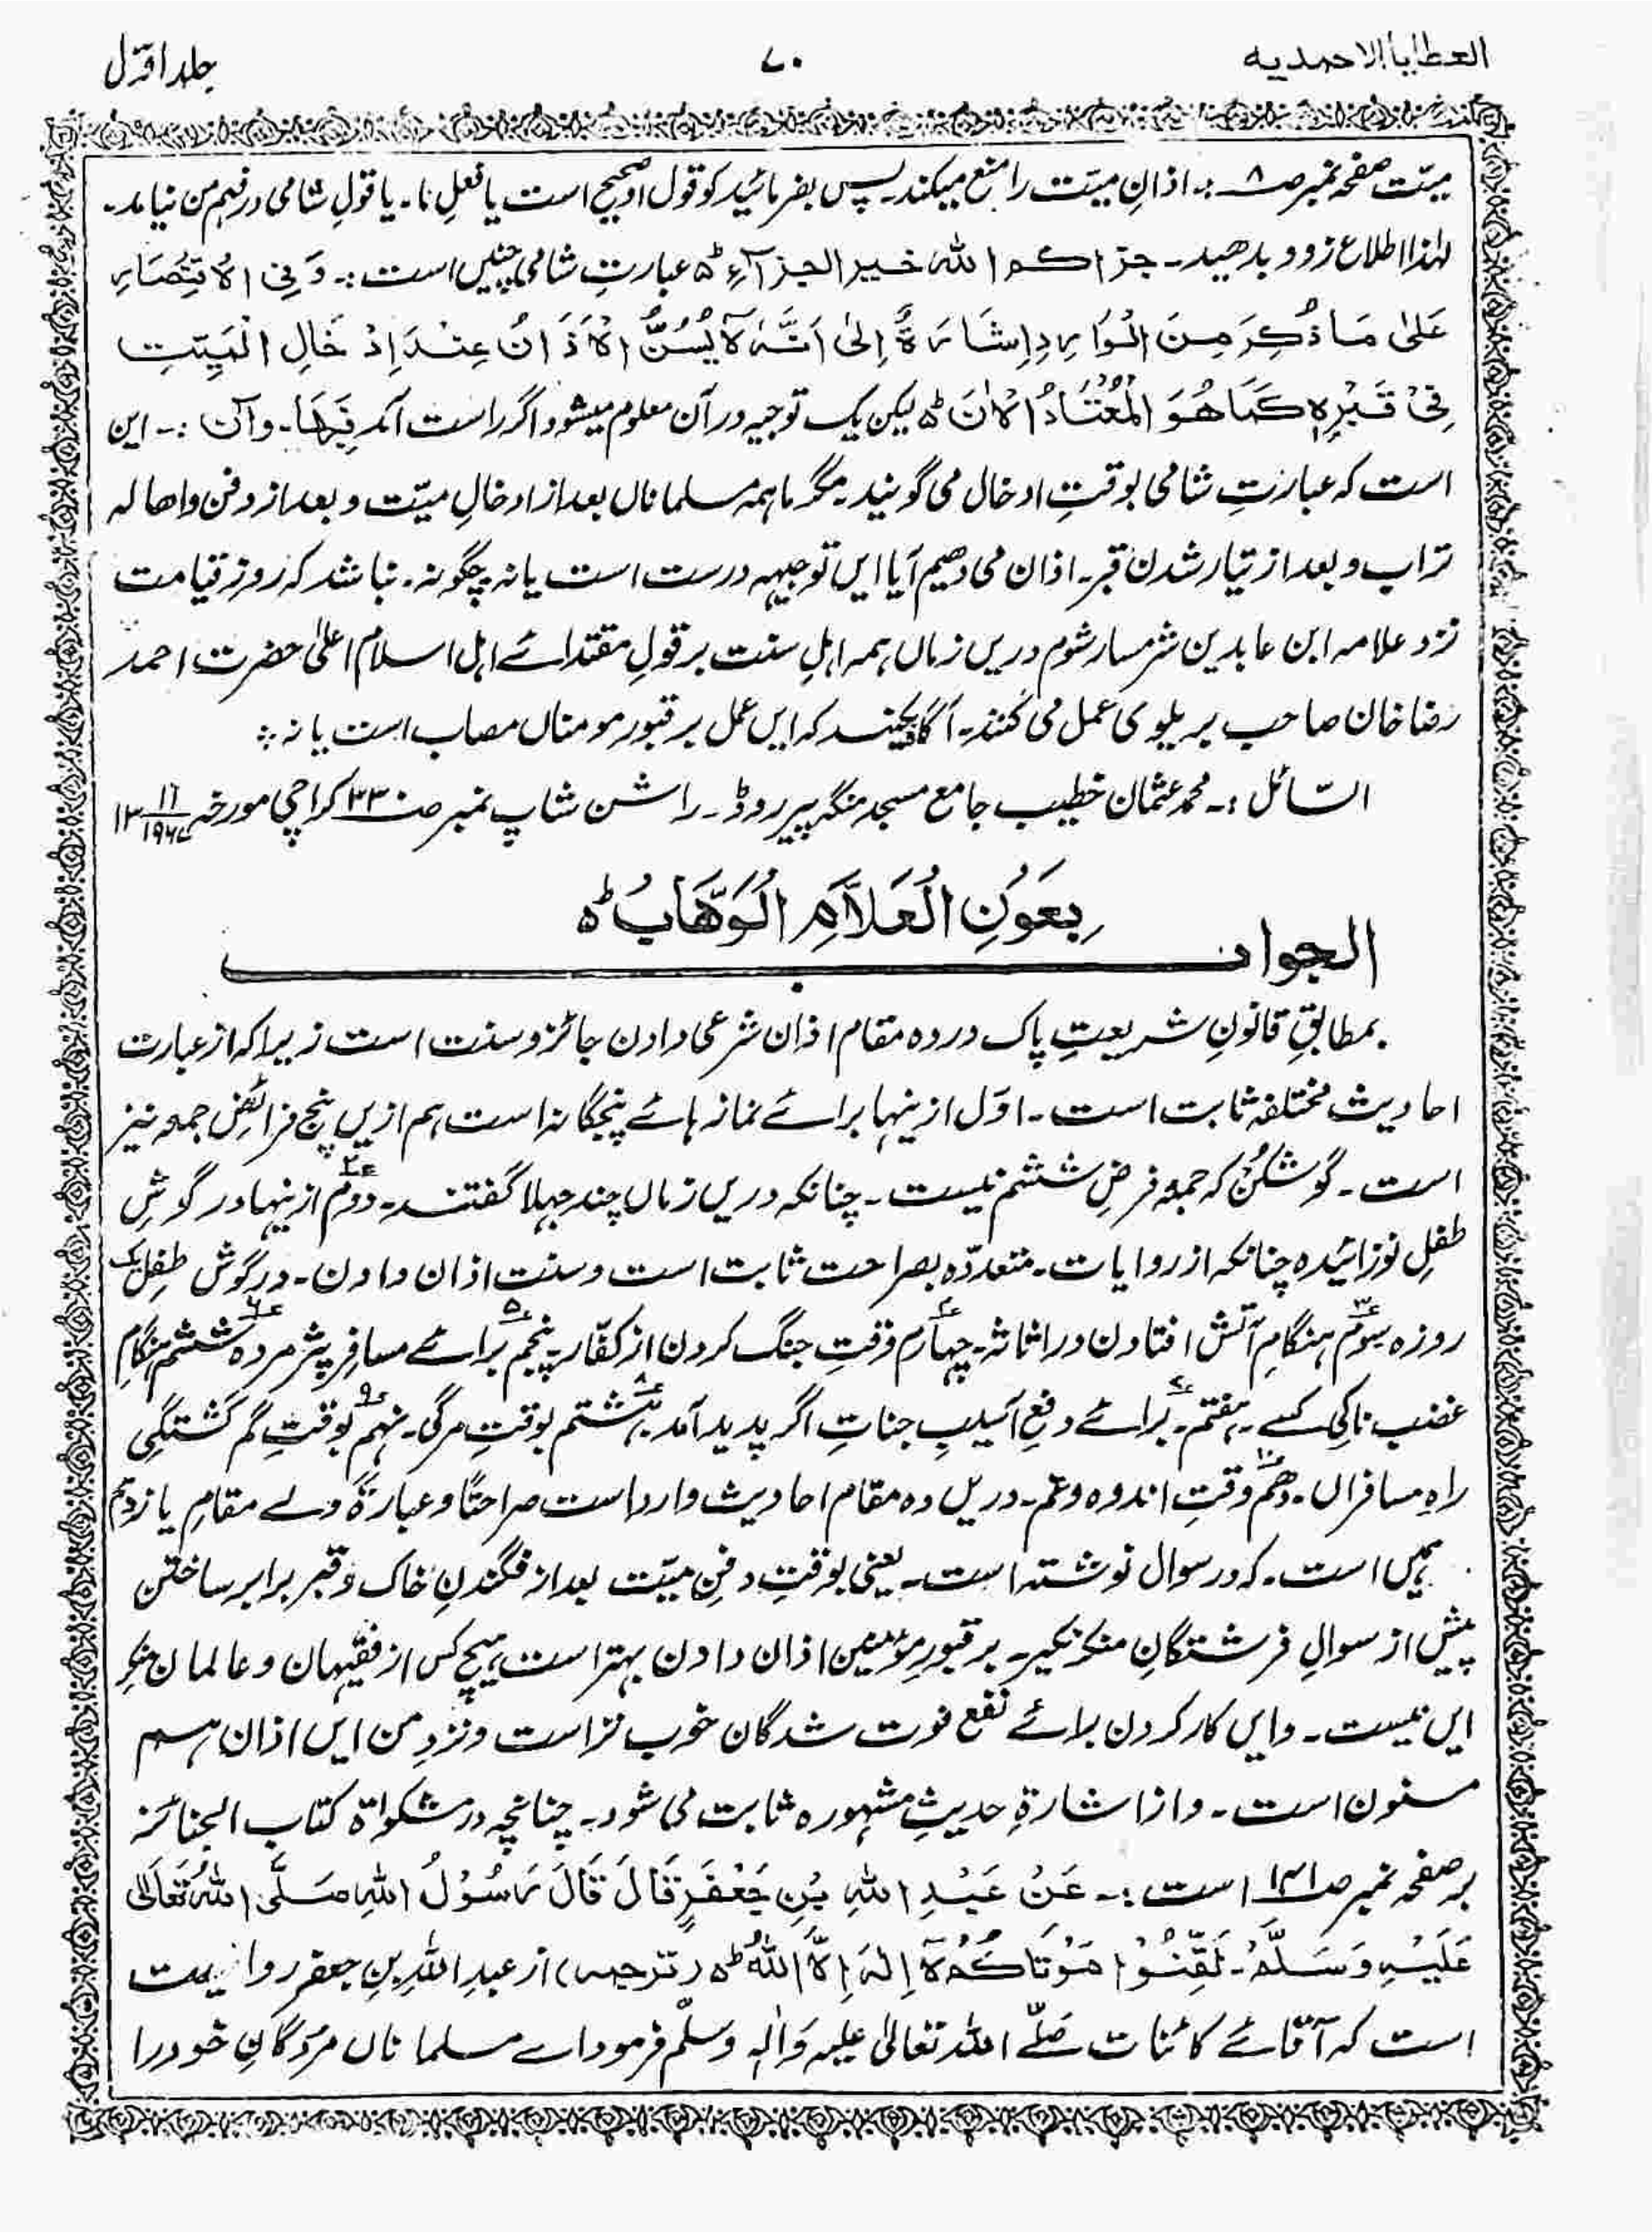 العطایا الاحمدیه ۷۰ جلد اوّل
میّت صفحہ نمبر صـ۸ :۔ اذانِ میّت را منع میکند۔ پس بفرمائید کو قول او صحیح است یا فعلِ نا۔ یا قولِ شامی در فہم من نیامد۔
لہٰذا اطلاع زود بدھید۔ جزاکم اللہ خیر الجزآءِ ط ہ عبارتِ شامی چنیں است :۔ وَفِی الْاِقْتِصَارِ
عَلیٰ مَا ذُکِرَ مِنَ الْوَارِدِ اِشَارَۃٌ اِلیٰ اَنَّہٗ لَا یُسَنُّ الْاَذَانُ عِنْدَ اِدْخَالِ الْمَیِّتِ
فِیْ قَبْرِہٖ کَمَا ھُوَ الْمُعْتَادُ الْاٰنَ ط ہ لیکن یک توجیہ درآن معلوم میشود اگر راست آمد فَبِہَا۔ وآن :۔ این
است کہ عبارتِ شامی بوقتِ ادخال می گویند۔ مگر ما ہمہ مسلماناں بعد از ادخالِ میّت و بعد از دفن واھالہ
تراب و بعد از تیار شدن قبر۔ اذان می دھیم آیا ایں توجیہہ درست است یا نہ چگونہ۔ نباشد کہ روز قیامت
نزد علامہ ابن عابدین شرمسار شوم دریں زماں ہمہ اہلِ سنت بر قولِ مقتدائے اہل اسلام اعلیٰ حضرت احمد
رضا خان صاحب بریلوی عمل می کنند۔ آگاہ کنید کہ ایں عمل بر قبور مومناں مصاب است یا نہ :
السّائل :۔ محمد عثمان خطیب جامع مسجد منگھ پیر روڈ۔ راشن شاپ نمبر صـ۳۳۰ کراچی مورخہ ۱۳/۱۱/۱۹۶۷
بِعَوْنِ الْعَلَّامِ الْوَھَّابُ ط ہ
الجواب
بمطابقِ قانونِ شریعتِ پاک در دہ مقام اذان شرعی دادن جائز و سنت است زیرا کہ از عبارت
احادیث مختلفہ ثابت است۔ اوّل ازینہا برائے نماز ہائے پنجگانہ است ہم ازیں پنج فرائض جمعہ نیز
است۔ گوش کُن کہ جمعہ فرضِ ششم نیست۔ چنانکہ دریں زماں چند جہلا گفتند۔ دوم ۲ ازینہا در گوشِ
طفلِ نوزائیدہ چنانکہ از روایات۔ متعددہ بصراحت ثابت است و سنت اذان دادن۔ در گوش طفلِ یک
روزہ سوم ۳ ہنگامِ آتش افتادن در اثاثہ۔ چہارم ۴ وقتِ جنگ کردن از کفّار۔ پنجم ۵ برائے مسافرِ پژمردہ ششم ۶ ہنگامِ
غضب ناکیِ کسے۔ ہفتم ۷۔ برائے دفعِ آسیبِ جنات اگر پدید آمد۔ ہشتم ۸ بوقتِ مرگی۔ نہم ۹ بوقتِ گم گشتگیِ
راہِ مسافراں۔ دھم ۱۰ وقتِ اندوہ و غم۔ دریں دہ مقام احادیث وارد است صراحتًا و عبارۃً ولے مقامِ یازدہم
ہمیں است۔ کہ در سوال نوشتہ است۔ یعنی بوقتِ دفنِ میّت بعد از فگندنِ خاک و قبر برابر ساختن
پیش از سوالِ فرشتگانِ منکر نکیر۔ بر قبورِ مؤمنین اذان دادن بہتر است، ہیچ کس از فقیہان و عالمان منکرِ
ایں نیست۔ وایں کار کردن برائے نفعِ فوت شدگان خوب تر است و نزدِ من ایں اذان ہم
مسنون است۔ و از اشارۃِ حدیثِ مشہورہ ثابت می شود۔ چنانچہ در مشکوٰۃ کتاب الجنائز
بر صفحہ نمبر صـ۱۴۱ است :۔ عَنْ عَبْدِ اللہِ بْنِ جَعْفَرٍ قَالَ قَالَ رَسُوْلُ اللہِ صَلَّی اللہُ تَعَالیٰ
عَلَیْہِ وَسَلَّمَ۔ لَقِّنُوْا مَوْتَاکُمْ لَآ اِلٰہَ اِلَّا اللہُ ط ہ (ترجمہ) از عبدِ اللہِ بنِ جعفر روایت
است کہ آقائے کائنات صَلّے اللہ تعالیٰ علیہ وَاٰلہٖ وسلّم فرمود اے مسلماناں مردگانِ خود را